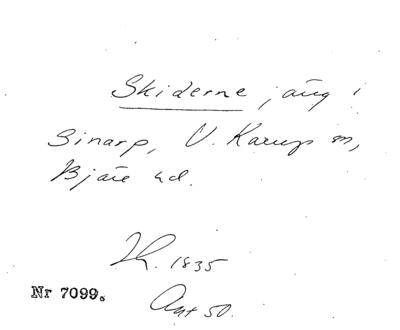 Skiderne, äng i
Sinarp, V. Karup sn,
Bjäre hd.
Lh. 1835
Nr 7099.
Ant 50.